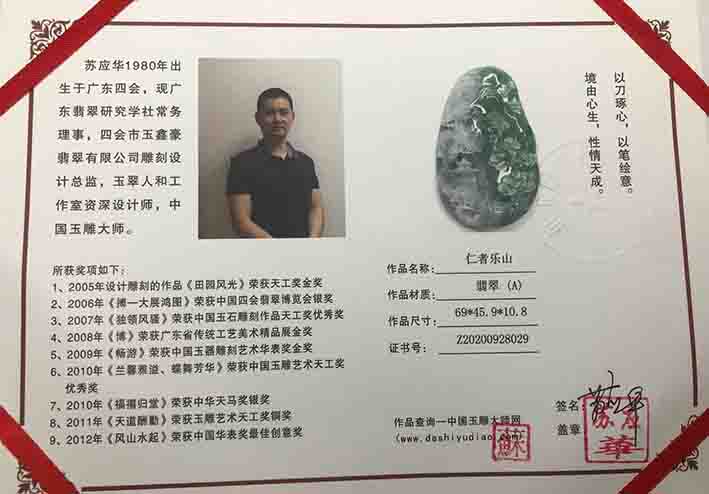 苏应华1980年出
生于广东四会，现广
东翡翠研究学社常务
理事，四会市玉鑫豪
翡翠有限公司雕刻设
计总监，玉翠人和工
作室资深设计师，中
国玉雕大师。
以刀琢心，以笔绘意。
境由心生，性情天成。
所获奖项如下：
1、2005年设计雕刻的作品《田园风光》荣获天工奖金奖
2、2006年《搏一大展鸿图》荣获中国四会翡翠博览会银奖
3、2007年《独领风骚》荣获中国玉石雕刻作品天工奖优秀奖
4、2008年《博》荣获广东省传统工艺美术精品展金奖
5、2009年《畅游》荣获中国玉器雕刻艺术华表奖金奖
6、2010年《兰馨雅溢、蝶舞芳华》荣获中国玉雕艺术天工奖
优秀奖
7、2010年《福禄归堂》荣获中华天马奖银奖
8、2011年《天道酬勤》荣获玉雕艺术天工奖铜奖
9、2012年《风山水起》荣获中国华表奖最佳创意奖
作品名称：仁者乐山
作品材质：翡翠 (A)
作品尺寸：69*45.9*10.8
证书号：Z20200928029
作品查询一中国玉雕大师网
(www.dashiyudiao.com)
签名：苏应华
盖章：
蘇
苏应
華